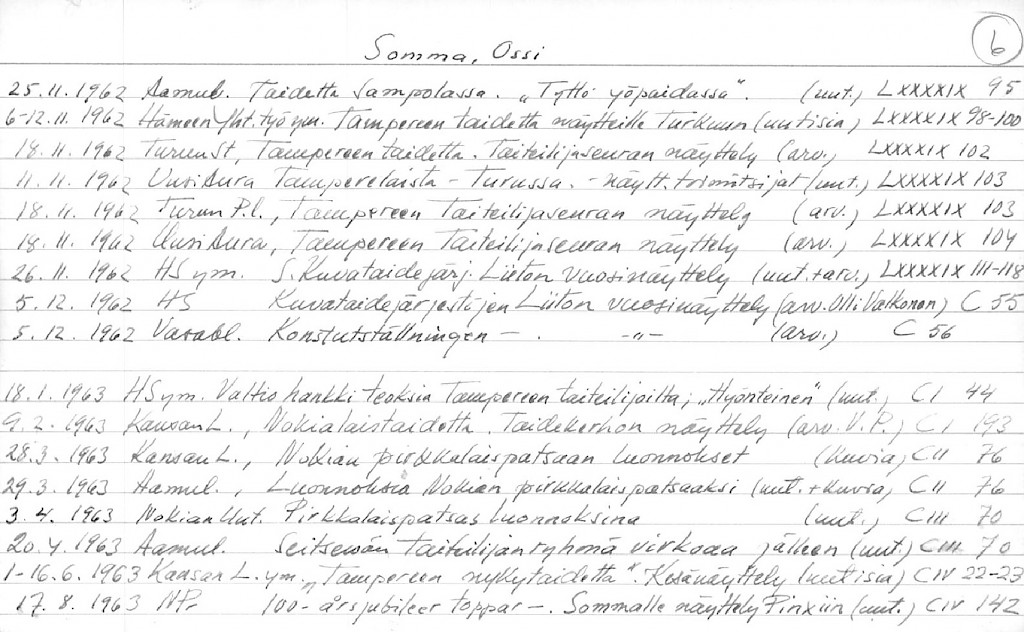 6
Somma, Ossi
25.11.1962 Aamul. Taidetta Sampolassa. „Tyttö yöpaidassa". (uut.) LXXXXIX 95
6-12.11.1962 Hämeen Yht.työ ym. Tampereen taidetta näytteille Turkuun (uutisia) LXXXXIX 98-100
18.11.1962 TurunSt, Tampereen taidetta. Taiteilijaseuran näyttely (arv.) LXXXXIX 102
11.11.1962 UusiAura Tamperelaista - Turussa. - näytt.toimitsijat (uut.) LXXXXIX 103
18.11.1962 Turun P.l., Tampereen Taiteilijaseuran näyttely (arv.) LXXXXIX 103
18.11.1962 UusiAura, Tampereen Taiteilijaseuran näyttely (arv.) LXXXXIX 104
26.11.1962 HS ym. S.Kuvataidejärj. Liiton vuosinäyttely (uut.+arv.) LXXXXIX 111-118
5.12.1962 HS Kuvataidejärjestöjen Liiton vuosinäyttely (arv. Olli Valkonen) C 55
5.12.1962 Vasabl. Konstutställningen - . -"- (arv.) C 56
18.1.1963 HS ym. Valtio hankki teoksia Tampereen taiteilijoilta; „Hyönteinen" (uut.) CI 44
9.2.1963 Kansan L., Nokialaistaidetta. Taidekerhon näyttely (arv. V.P.) CI 193
28.3.1963 Kansan L., Nokian pirkkalaispatsaan luonnokset (kuvia) CII 76
29.3.1963 Aamul., Luonnoksia Nokian pirkkalaispatsaaksi (uut.+kuvia) CII 76
3.4.1963 NokianUut. Pirkkalaispatsas luonnoksina (uut.) CIII 70
20.4.1963 Aamul. Seitsemän taiteilijan ryhmä virkoaa jälleen (uut.) CIII 70
1-16.6.1963 Kansan L. ym. „Tampereen nykytaidetta". Kesänäyttely (uutisia) CIV 22-23
17.8.1963 NPr 100-årsjubileer toppar -. Sommalle näyttely Pinxiin (uut.) CIV 142